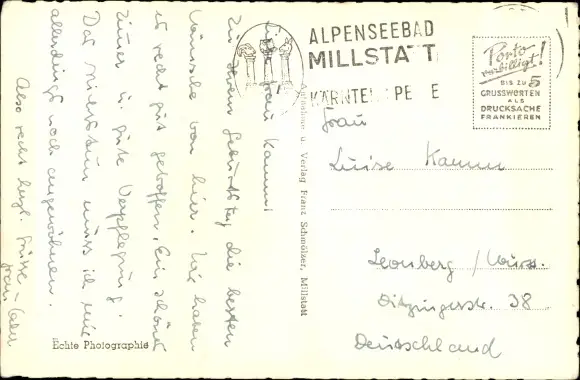 Liebe Frau Kamm!
Zu Ihrem Geburtstag die besten
Wünsche von hier. Wir haben
es recht gut getroffen. Ein schönes
Zimmer u. gute Verpflegung.
Das muss ich mir
allerdings noch angewöhnen.
Also recht herzl. Grüsse –
Echte Photographie
Aufnahme u. Verlag Franz Schmölzer, Millstatt
ALPENSEEBAD
MILLSTATT
KÄRNTEN PE E
Porto
verbilligt!
BIS ZU 5
GRUSSWORTEN
ALS
DRUCKSACHE
FRANKIEREN
Frau
Luise Kamm
Leonberg /
Ditzingerstr. 38
Deutschland